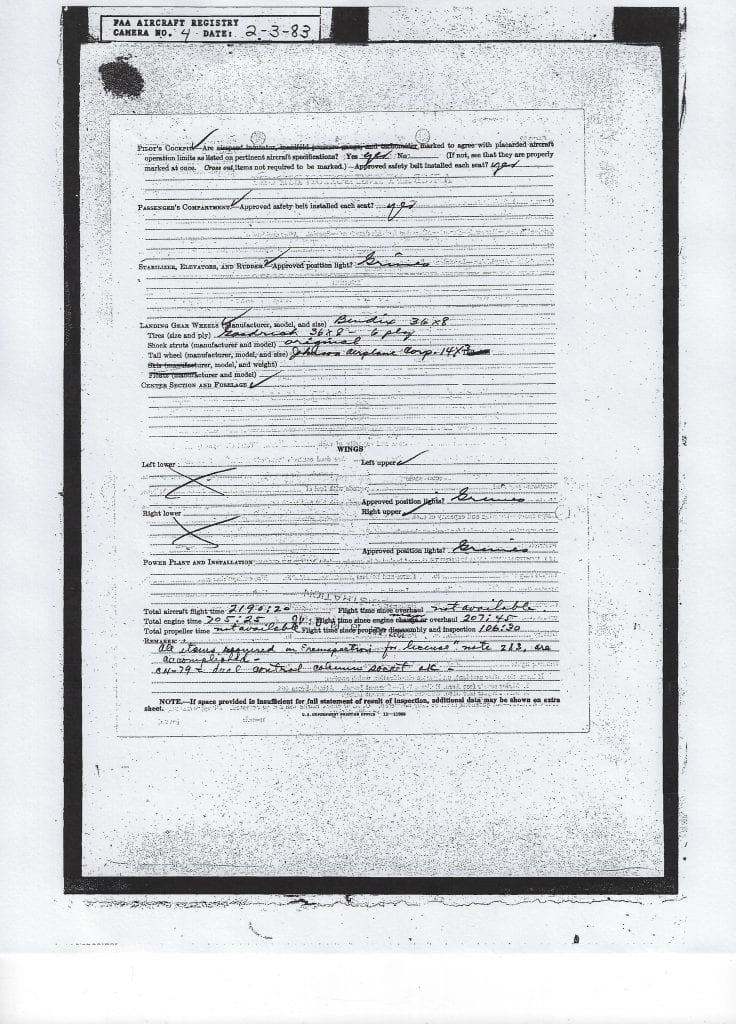 FAA AIRCRAFT REGISTRY
CAMERA NO. 4 DATE: 2-3-83
PILOT'S COCKPIT ✓—Are airspeed indicator, manifold pressure gauge, and tachometer marked to agree with placarded aircraft
operation limits as listed on pertinent aircraft specifications? Yes yes No (If not, see that they are properly
marked at once. Cross out items not required to be marked.)—Approved safety belt installed each seat? yes
PASSENGER'S COMPARTMENT ✓—Approved safety belt installed each seat? yes
STABILIZER, ELEVATORS, AND RUDDER ✓—Approved position light? Grimes
LANDING GEAR WHEELS ✓ (manufacturer, model, and size) Bendix 36x8
Tires (size and ply) Goodrich 36x8 - 6 ply
Shock struts (manufacturer and model) original
Tail wheel (manufacturer, model, and size) Johnson Airplane Corp. 14x3
Skis (manufacturer, model, and weight)
Floats (manufacturer and model)
CENTER SECTION AND FUSELAGE ✓
WINGS
Left lower Left upper ✓
Approved position lights? Grimes
Right lower Right upper ✓
Approved position lights? Grimes
POWER PLANT AND INSTALLATION
Total aircraft flight time 2190:20 Flight time since overhaul not available
Total engine time 705:25 Flight time since engine change or overhaul 207:45
Total propeller time not available Flight time since propeller disassembly and inspection 106:30
REMARKS:
All items required on "reinspection for license" note 213, are
accomplished -
CH-79 - dual control columns OK -
NOTE.—If space provided is insufficient for full statement of result of inspection, additional data may be shown on extra
sheet.
U.S. GOVERNMENT PRINTING OFFICE